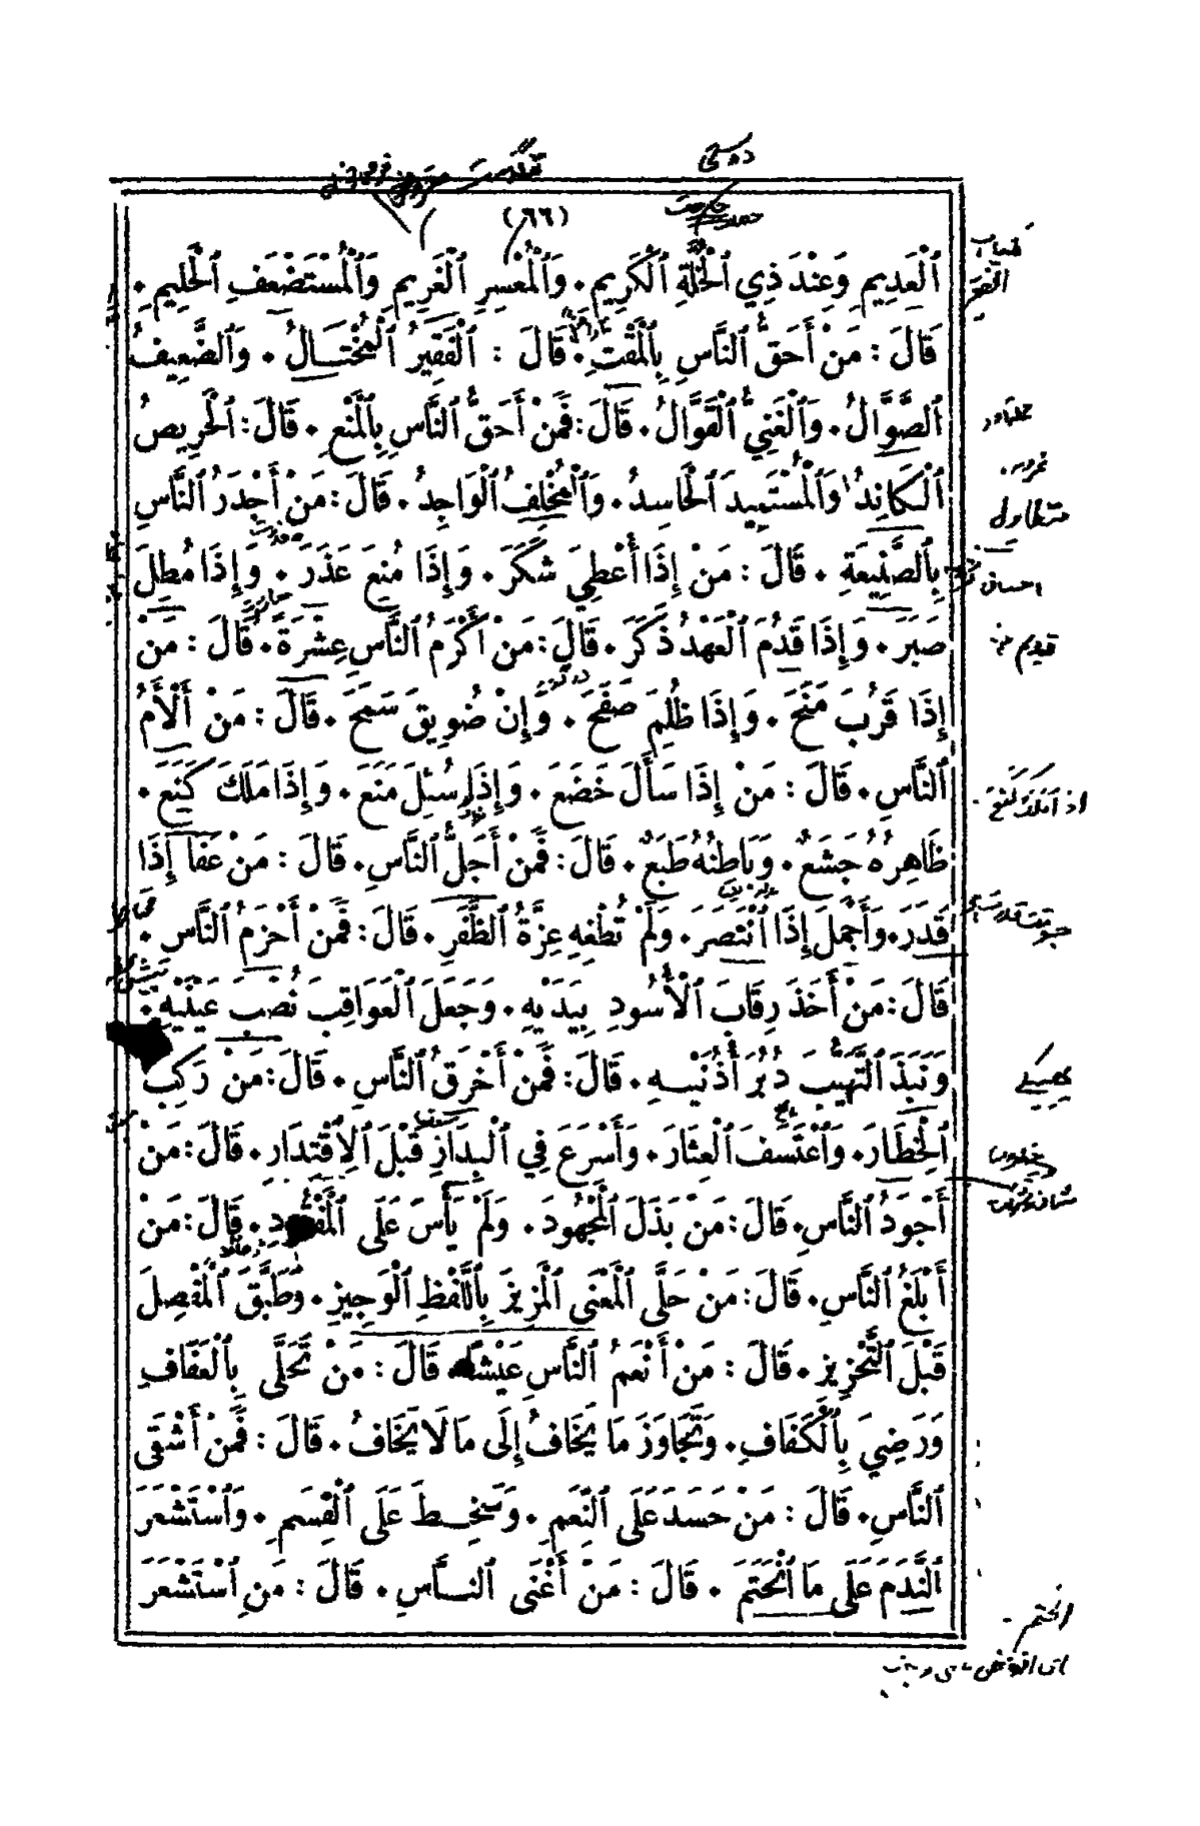 دوستی
تنگدست
(٦٦)
ٱلْعَدِيمِ وَعِنْدَ ذِي ٱلْخُلَّةِ ٱلْكَرِيمِ. وَٱلْمُعْسِرِ ٱلْغَرِيمِ وَٱلْمُسْتَضْعَفِ ٱلْحَلِيمِ.
قَالَ: مَنْ أَحَقُّ ٱلنَّاسِ بِٱلْمَقْتِ. قَالَ: ٱلْفَقِيرُ ٱلْمُخْتَالُ. وَٱلضَّعِيفُ
ٱلصَّوَّالُ. وَٱلْغَنِيُّ ٱلْقَوَّالُ. قَالَ: فَمَنْ أَحَقُّ ٱلنَّاسِ بِٱلْمَنْعِ. قَالَ: ٱلْحَرِيصُ
ٱلْكَانِدُ وَٱلْمُسْتَمِيدَ ٱلْحَاسِدُ. وَٱلْمُخْلِفُ ٱلْوَاجِدُ. قَالَ: مَنْ أَجْدَرُ ٱلنَّاسِ
متطاول
بِٱلصَّنِيعَةِ. قَالَ: مَنْ إِذَا أُعْطِيَ شَكَرَ. وَإِذَا مُنِعَ عَذَرَ. وَإِذَا مُطِلَ
احسان
صَبَرَ. وَإِذَا قَدُمَ ٱلْعَهْدُ ذَكَرَ. قَالَ: مَنْ أَكْرَمُ ٱلنَّاسِ عِشْرَةً. قَالَ: مَنْ
إِذَا قَرُبَ مَنَحَ. وَإِذَا ظُلِمَ صَفَحَ. وَإِنْ ضُويِقَ سَمَحَ. قَالَ: مَنْ أَلْأَمُ
ٱلنَّاسِ. قَالَ: مَنْ إِذَا سَأَلَ خَضَعَ. وَإِذَا سُئِلَ مَنَعَ. وَإِذَا مَلَكَ كَنَعَ.
ظَاهِرُهُ جَشَعٌ. وَبَاطِنُهُ طَبَعٌ. قَالَ: فَمَنْ أَجَلُّ ٱلنَّاسِ. قَالَ: مَنْ عَفَا إِذَا
قَدَرَ. وَأَجْمَلَ إِذَا ٱنْتَصَرَ. وَلَمْ تُطْغِهِ عِزَّةُ ٱلظَّفَرِ. قَالَ: فَمَنْ أَحْزَمُ ٱلنَّاسِ.
قَالَ: مَنْ أَخَذَ رِقَابَ ٱلْأُسُودِ بِيَدَيْهِ. وَجَعَلَ ٱلْعَوَاقِبَ نُصْبَ عَيْنَيْهِ.
وَنَبَذَ ٱلتَّهَيُّبَ دُبُرَ أُذُنَيْهِ. قَالَ: فَمَنْ أَخْرَقُ ٱلنَّاسِ. قَالَ: مَنْ رَكِبَ
ٱلْخِطَارَ. وَٱعْتَسَفَ ٱلْعِثَارَ. وَأَسْرَعَ فِي ٱلْبِدَارِ قَبْلَ ٱلِاقْتِدَارِ. قَالَ: مَنْ
أَجْوَدُ ٱلنَّاسِ. قَالَ: مَنْ بَذَلَ ٱلْمَجْهُودَ. وَلَمْ يَأْسَ عَلَى ٱلْمَفْقُودِ. قَالَ: مَنْ
أَبْلَغُ ٱلنَّاسِ. قَالَ: مَنْ حَلَّى ٱلْمَعْنَى ٱلْمَزِيزَ بِٱللَّفْظِ ٱلْوَجِيزِ. وَطَبَّقَ ٱلْمَفْصِلَ
قَبْلَ ٱلتَّحْزِيزِ. قَالَ: مَنْ أَنْعَمُ ٱلنَّاسِ عَيْشًا. قَالَ: مَنْ تَحَلَّى بِٱلْعَفَافِ
وَرَضِيَ بِٱلْكَفَافِ. وَتَجَاوَزَ مَا يَخَافُ إِلَى مَا لَا يَخَافُ. قَالَ: فَمَنْ أَشْقَى
ٱلنَّاسِ. قَالَ: مَنْ حَسَدَ عَلَى ٱلنِّعَمِ. وَسَخِطَ عَلَى ٱلْقِسَمِ. وَٱسْتَشْعَرَ
ٱلنَّدَمَ عَلَى مَا ٱنْحَتَمَ. قَالَ: مَنْ أَغْنَى ٱلنَّاسِ. قَالَ: مَنِ ٱسْتَشْعَرَ
انحتم